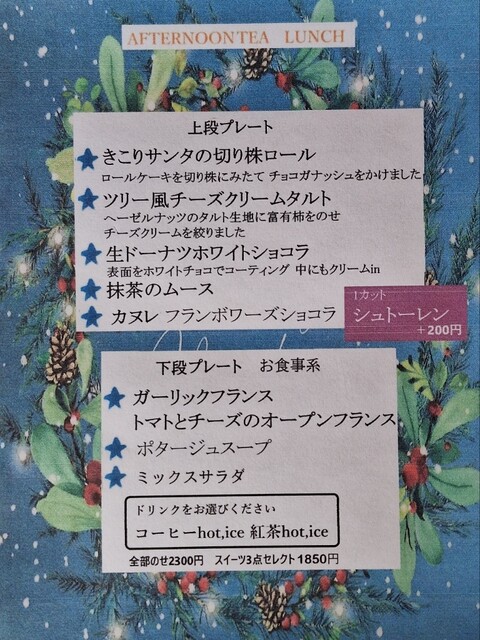 AFTERNOON TEA LUNCH
上段プレート
★きこりサンタの切り株ロール
ロールケーキを切り株にみたて チョコガナッシュをかけました
★ツリー風チーズクリームタルト
ヘーゼルナッツのタルト生地に富有柿をのせ
チーズクリームを絞りました
★生ドーナツホワイトショコラ
表面をホワイトチョコでコーティング 中にもクリームin
★抹茶のムース
★カヌレ フランボワーズショコラ
1カット
シュトーレン
+200円
下段プレート お食事系
★ガーリックフランス
トマトとチーズのオープンフランス
★ポタージュスープ
★ミックスサラダ
ドリンクをお選びください
コーヒーhot,ice 紅茶hot,ice
全部のせ2300円 スイーツ3点セレクト1850円